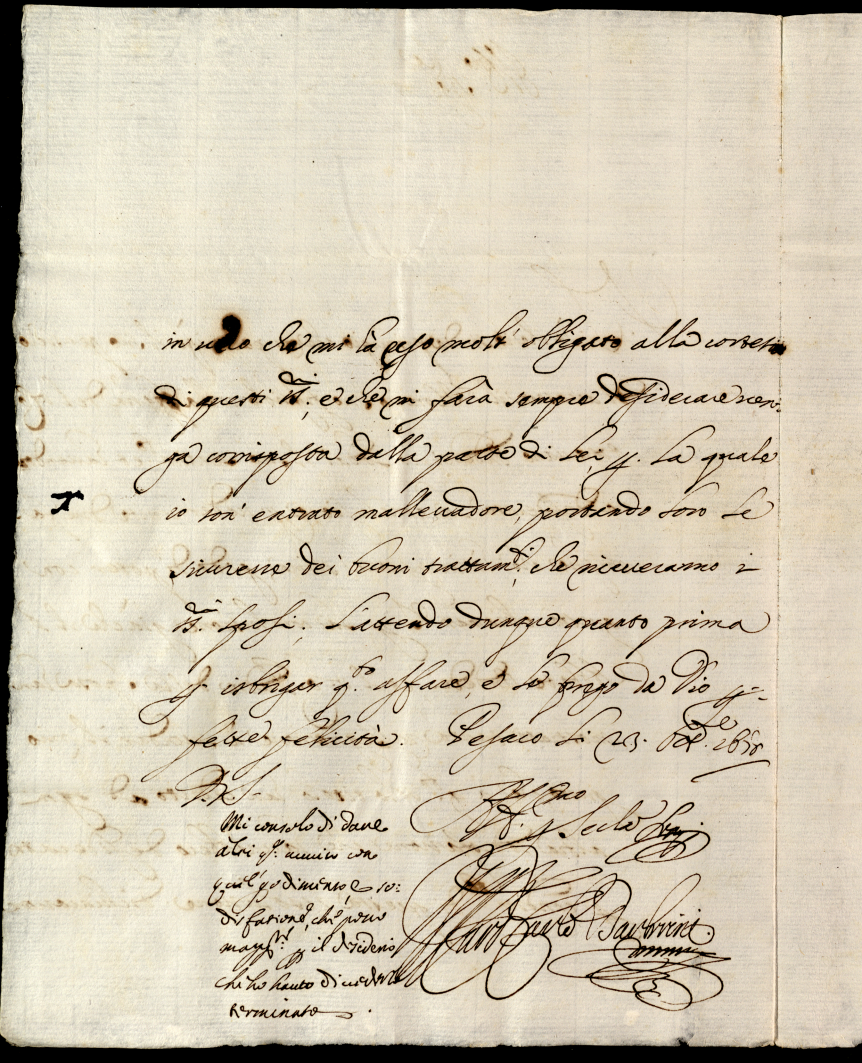 in che mi ha reso molt' obligato alla cortesia
di questi SS.ri, e che mi farà sempre desiderare ven:
ga corrisposta dalla parte di Lei, p. la quale
io son' entrato mallevadore, portando loro le
sicurezze dei buoni trattam.ti, che riceveranno i
SS.ri Sposi. L'attendo dunque quanto prima
p. isbrigar q.to affare, e le prego da Dio p-
fette felicità. Pesaro li 23. Ott.e
D. V. S.
Mi consolo di dare
a Lei q.o avviso con
quel godimento, e so:
disfazione, che può
magg.re p il desiderio
che ho hauto di vederlo
terminato.
Aff.mo
p Ser.la
Barberini